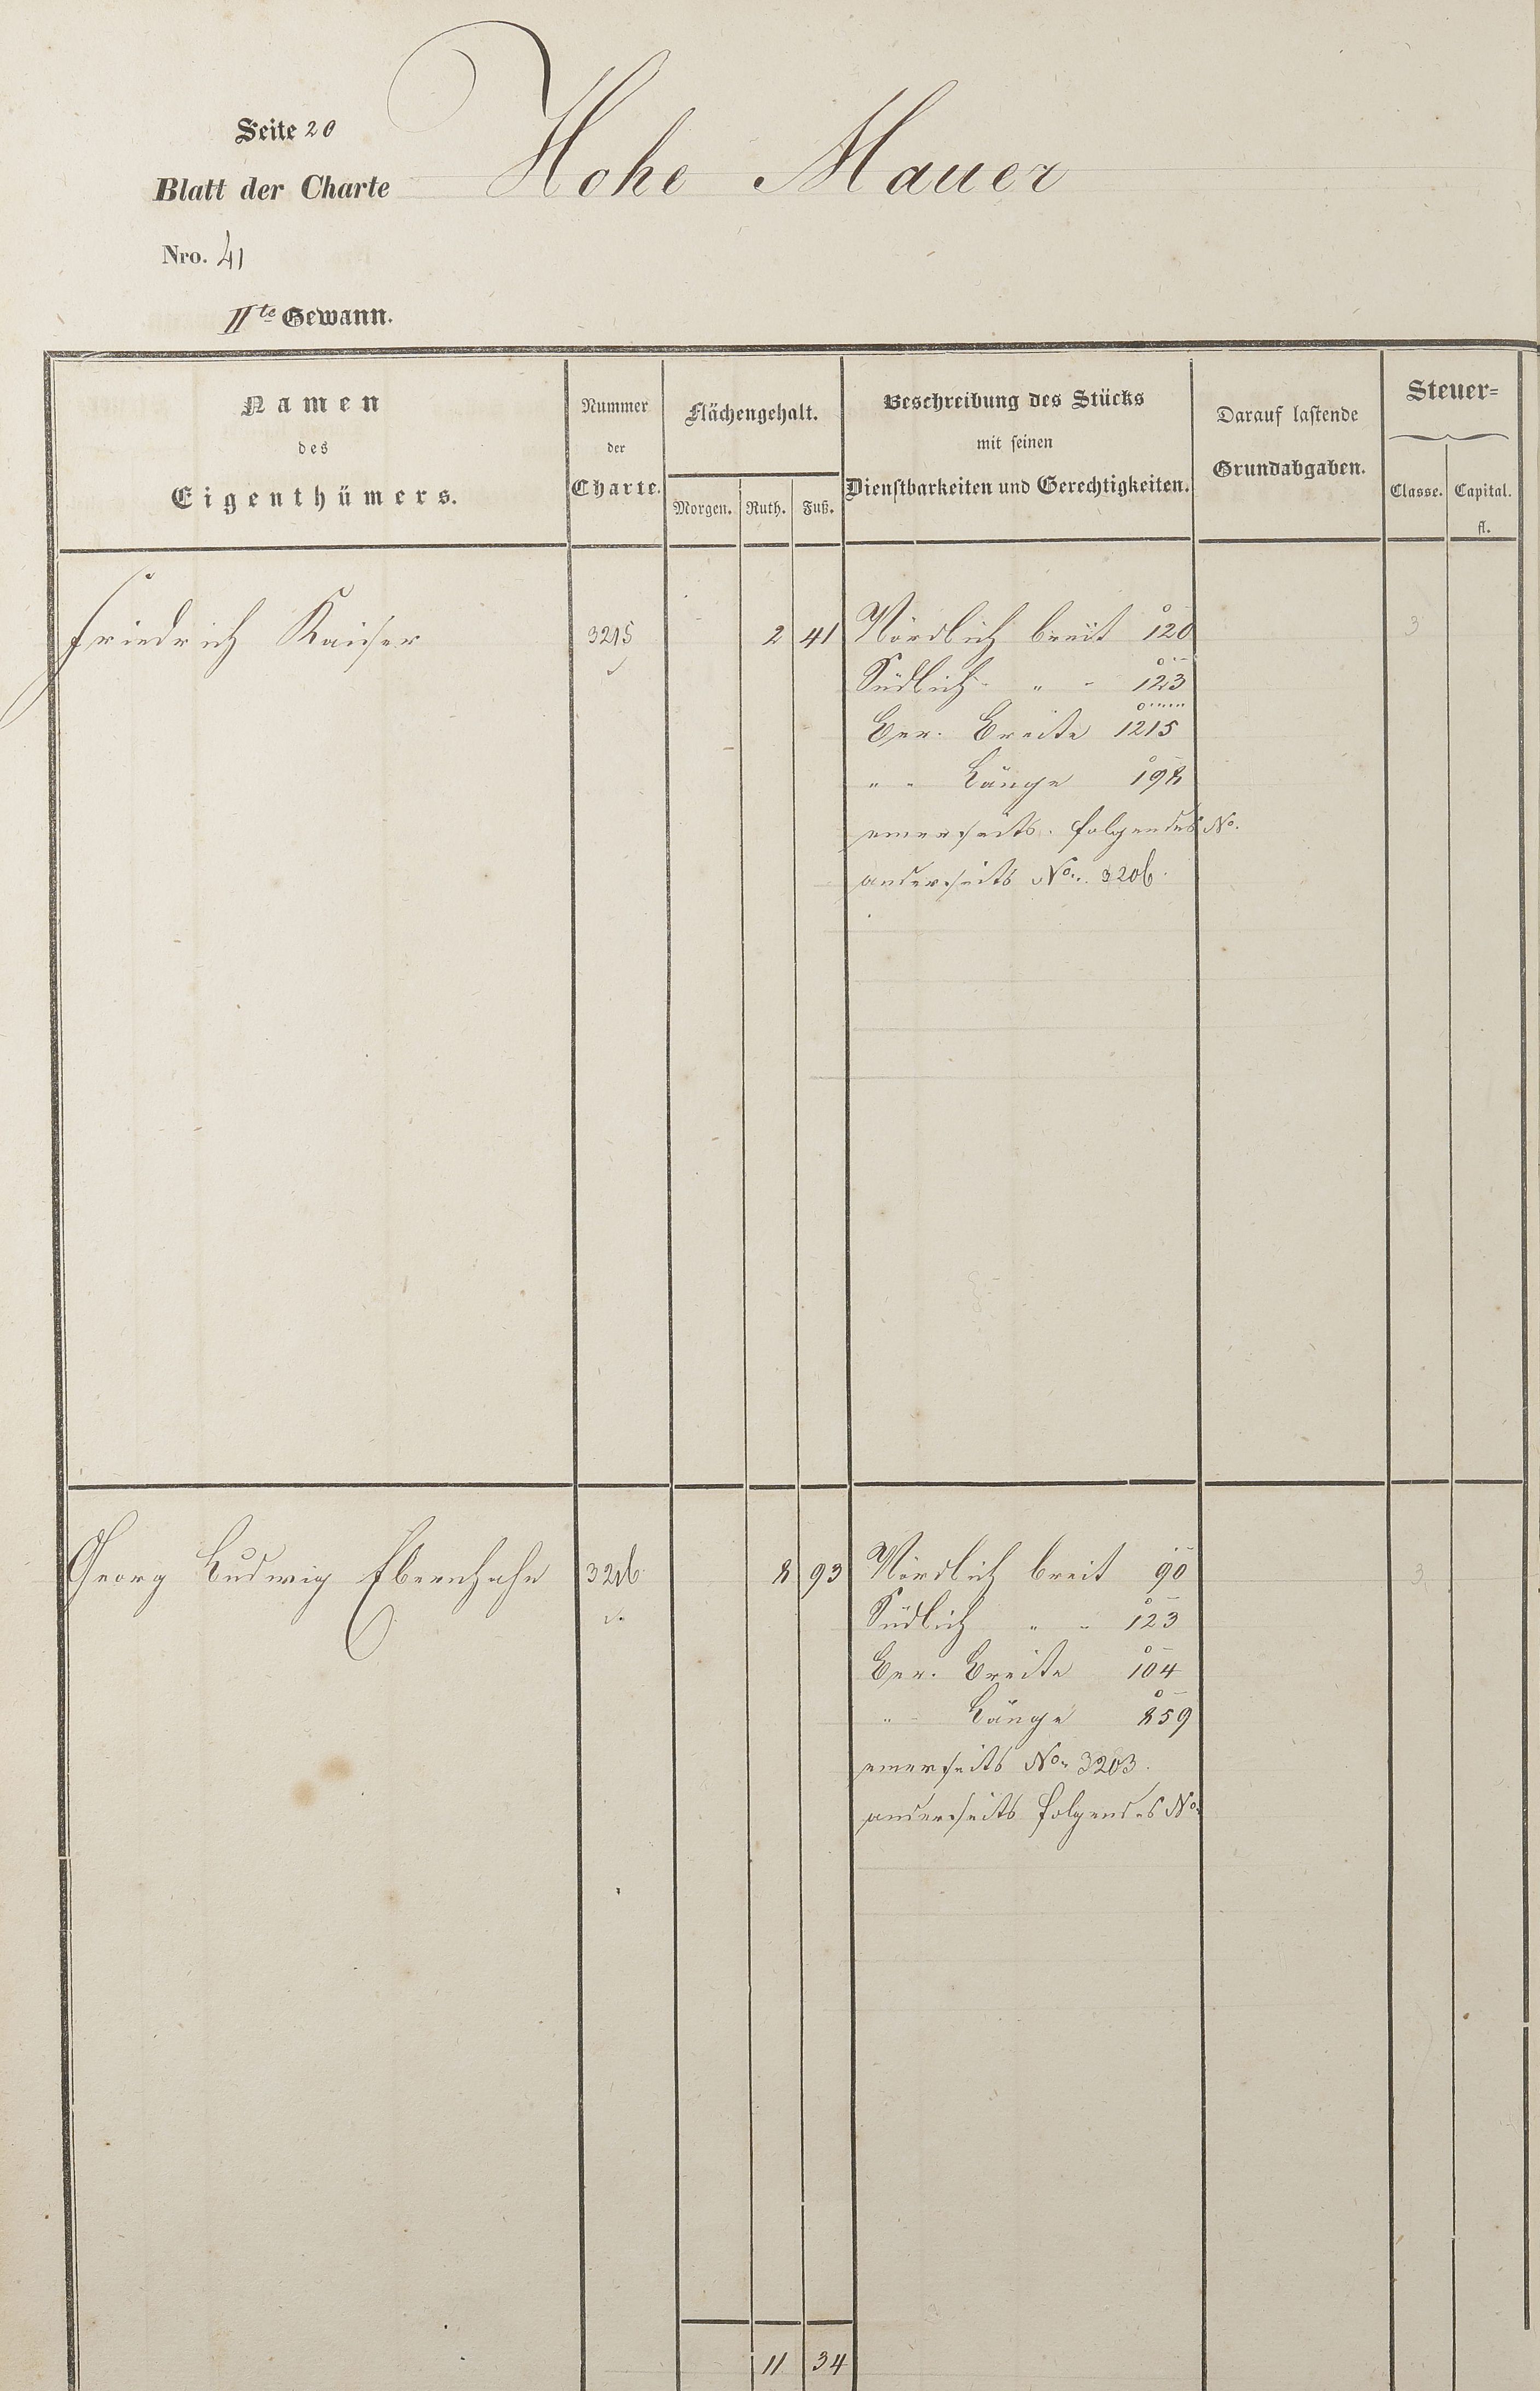 Seite 20
Hohe Mauer
Blatt der Charte
Nro. 41
IIte Gewann.
Namen
des
Eigenthümers.
Nummer
der
Charte.
Flächengehalt.
Morgen. Ruth. Fuß.
Beschreibung des Stücks
mit seinen
Dienstbarkeiten und Gerechtigkeiten.
Darauf lastende
Grundabgaben.
Steuer-
Classe. Capital.
fl.
Friedrich Kaiser 3215 2 41 Nördlich breit 120 3
Südlich " " 123
Ber. Breite 1215
" " Länge 198
einerseits folgendes No.
anderseits No. 3206.
Georg Ludwig Ebernhahn 3216 8 93 Nördlich breit 90 3
Südlich " " 123
Ber. Breite 104
" Länge 859
einerseits No. 3203.
anderseits folgendes No.
11 34